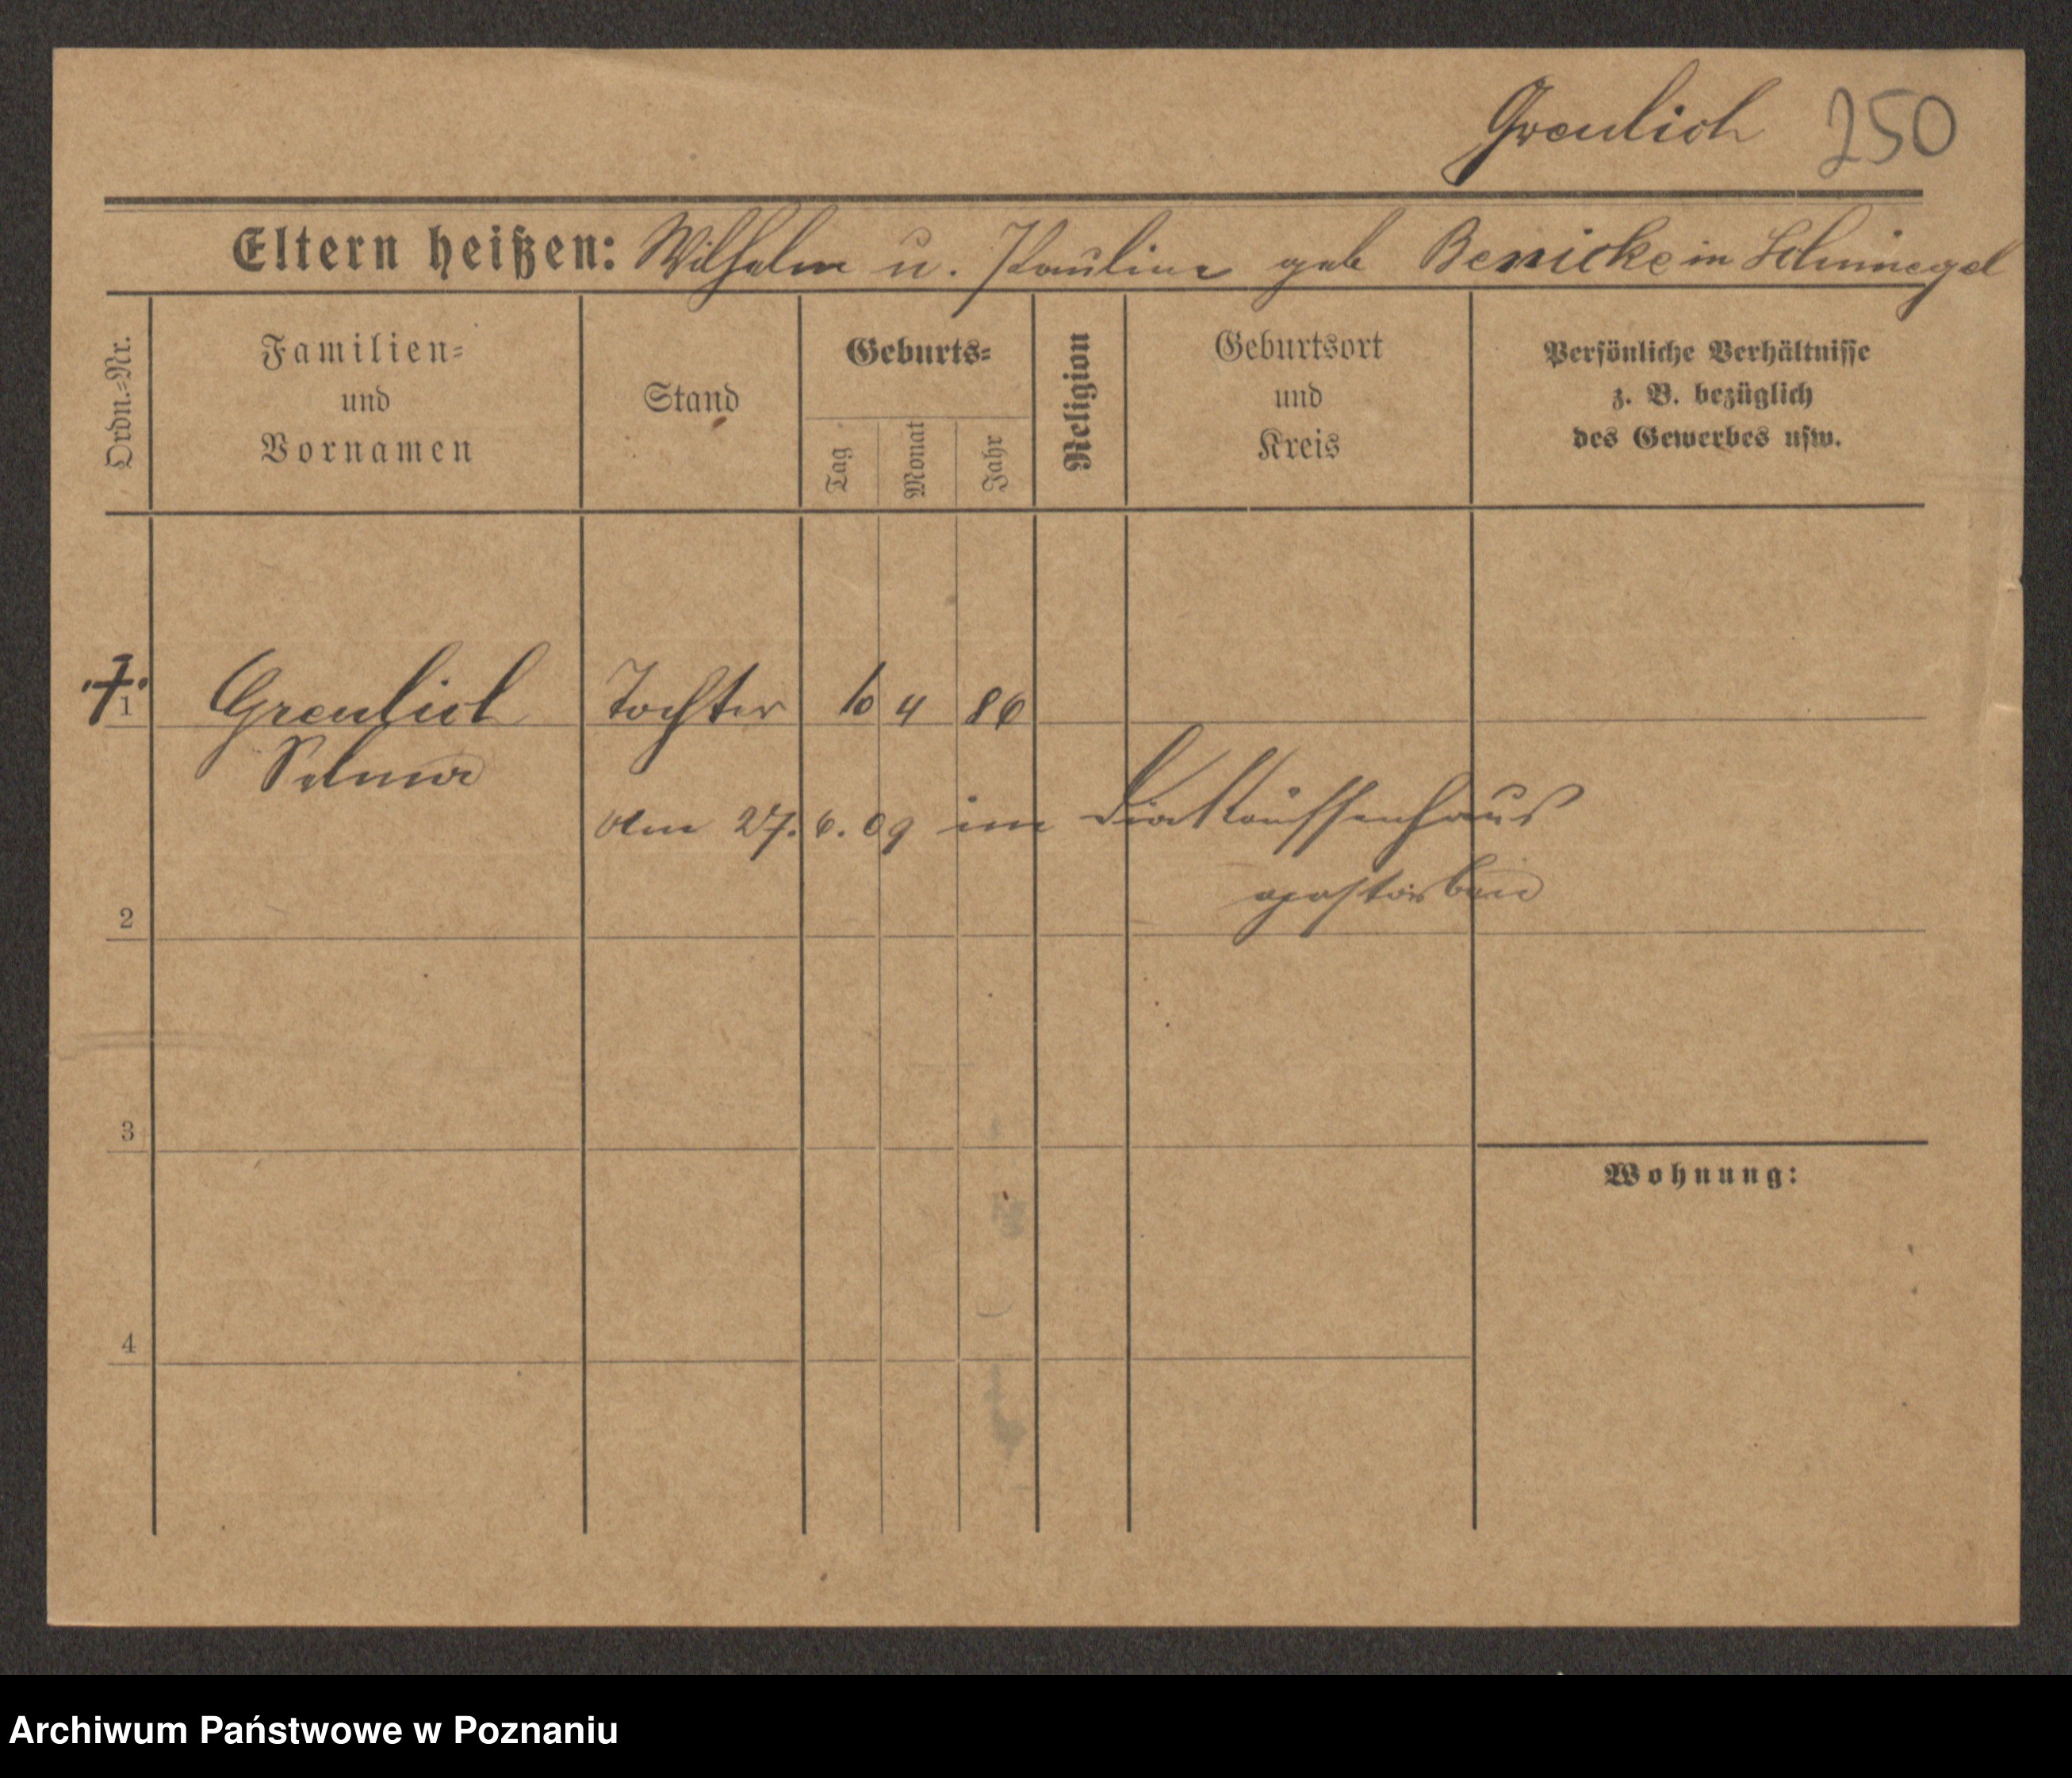 Greulich 250
Eltern heißen: Wilhelm u. Pauline geb Benicke in Schmiegel
Ordn.=Nr.
Familien=
und
Vornamen
Stand
Geburts=
Tag
Monat
Jahr
Religion
Geburtsort
und
Kreis
Persönliche Verhältnisse
z. B. bezüglich
des Gewerbes usw.
1 Greulich Tochter 4 86
Selma
Am 27.6.09 im
gestorben
2
3
Wohnung:
4
Archiwum Państwowe w Poznaniu